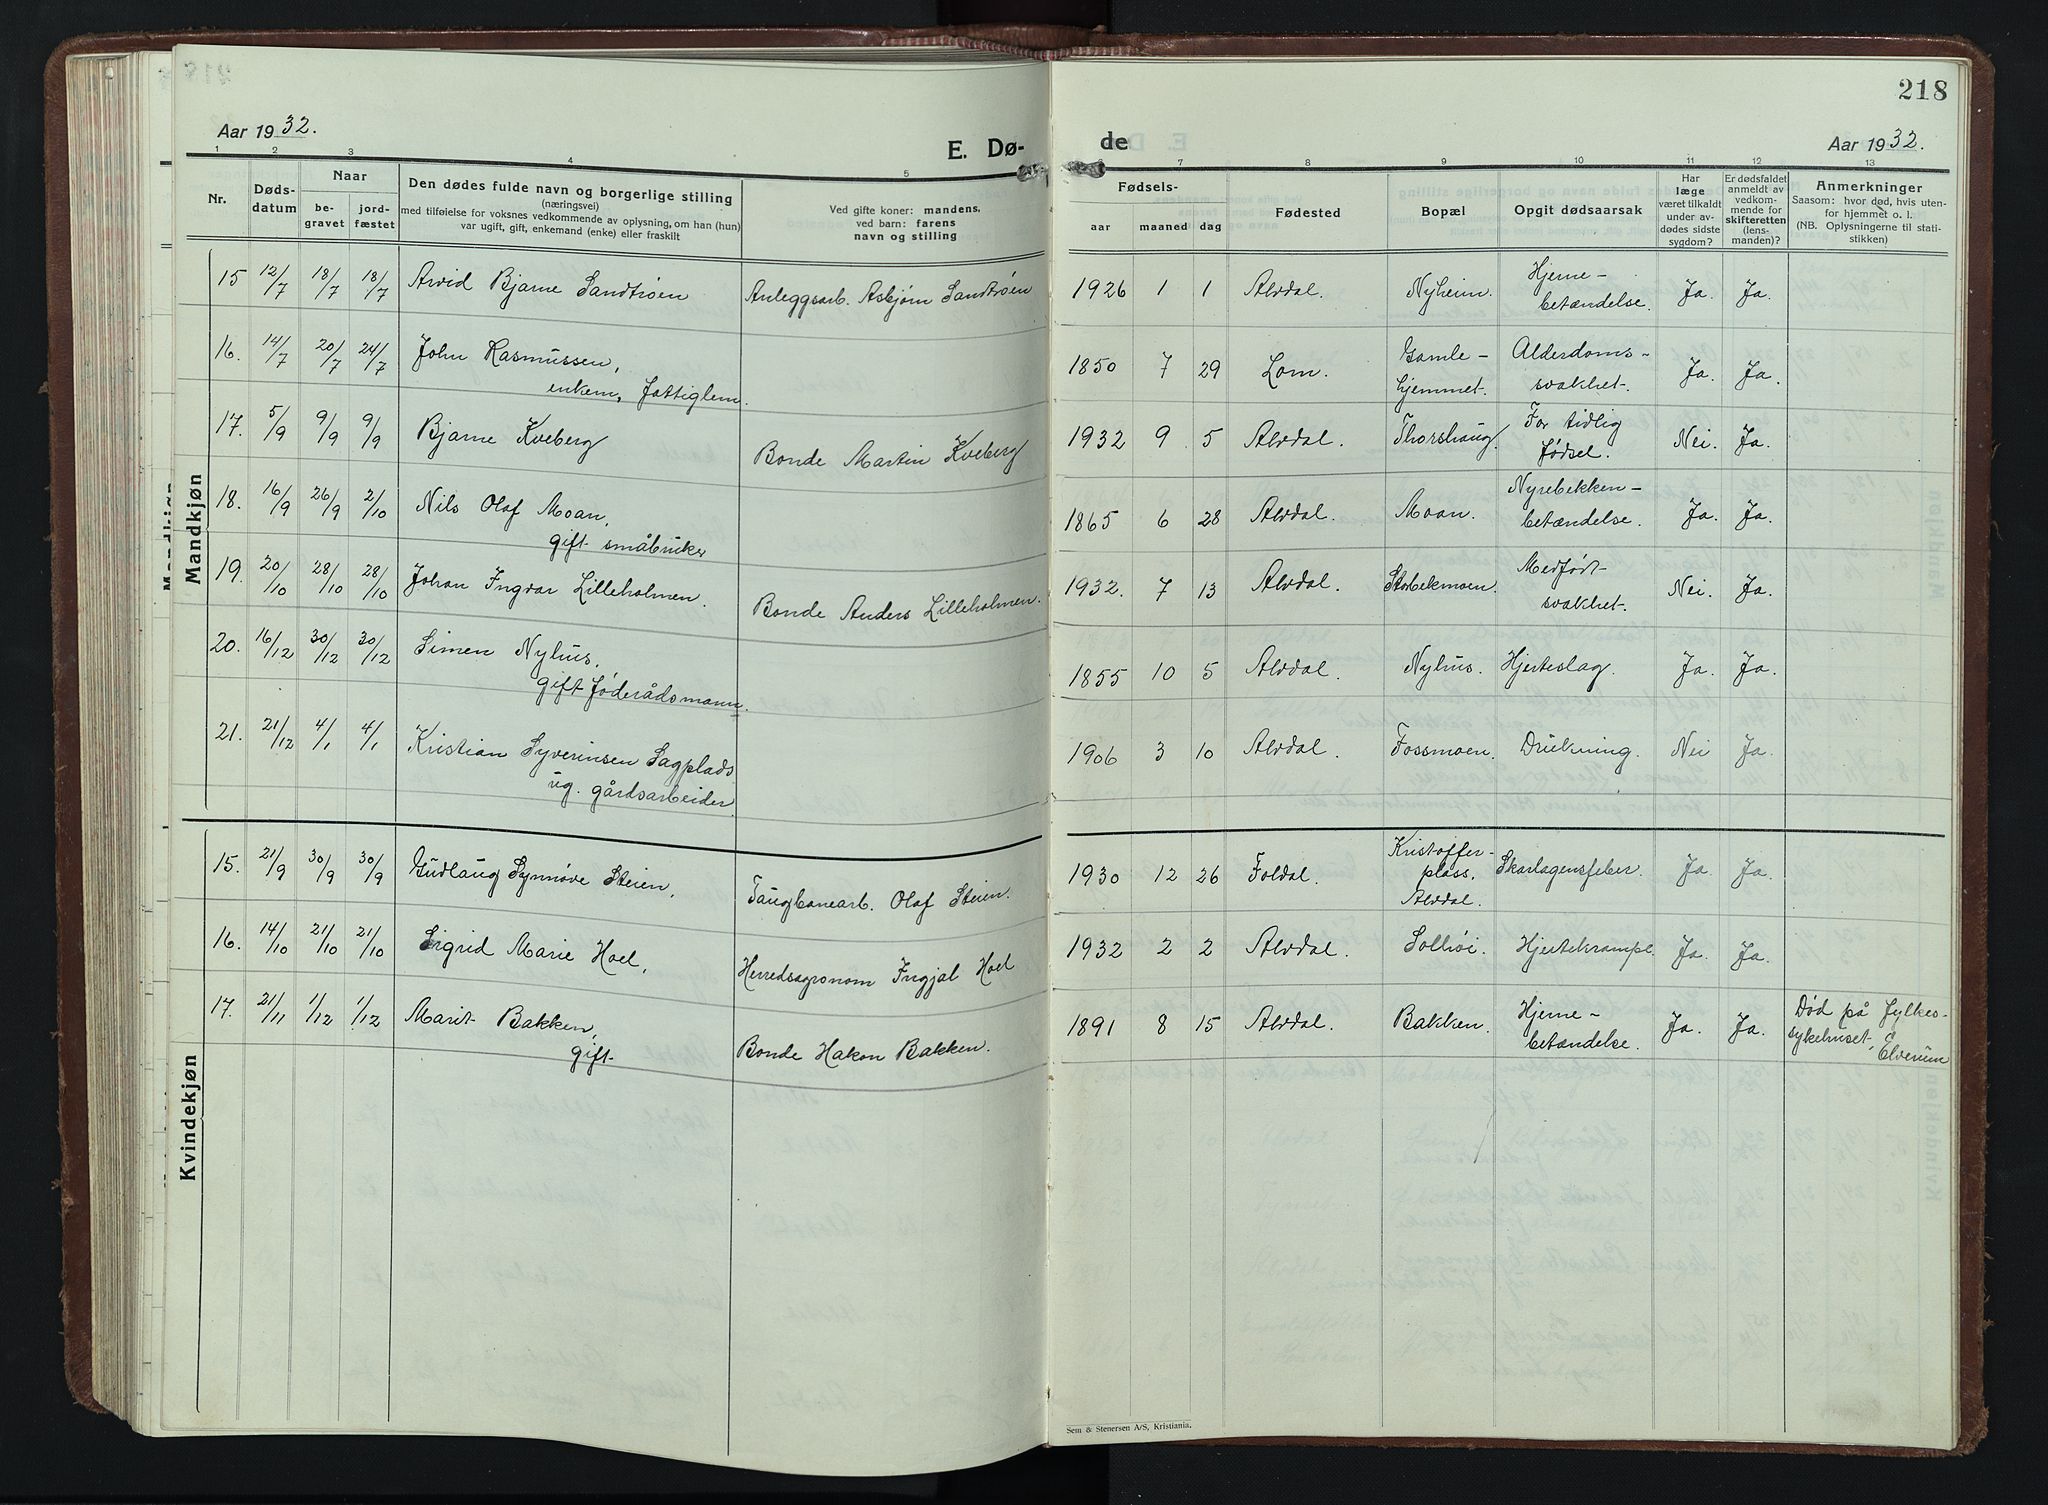 218
Aar 1932.
E. Dø-
de
Aar 1932.
1 2 3 4 5 6 7 8 9 10 11 12 13
Nr.
Døds-
datum
Naar
be-
gravet
jord-
fæstet
Den dødes fulde navn og borgerlige stilling
(næringsvei)
med tilføielse for voksnes vedkommende av oplysning, om han (hun)
var ugift, gift, enkemand (enke) eller fraskilt
Ved gifte koner: mandens,
ved barn: farens
navn og stilling
Fødsels-
aar maaned dag
Fødested
Bopæl
Opgit dødsaarsak
Har
læge
været tilkaldt
under av-
dødes sidste
sygdom?
Er dødsfaldet
anmeldt av
vedkom-
mende for
skifteretten
(lens-
manden)?
Anmerkninger
Saasom: hvor død, hvis uten-
for hjemmet o. l.
(NB. Oplysningerne til stati-
stikken)
Mandkjøn
15 12/7 18/7 18/7 Arvid Bjarne Sandtrøen Anleggsarb. Asbjørn Sandtrøen 1926 1 1 Alvdal. Nyheim. Hjerne-
betændelse. Ja. Ja.
16. 14/7 20/7 24/7 John Rasmussen,
enkem, fattiglem. 1850 7 29 Lom. Gamle-
hjemmet. Alderdoms-
svakhet. Ja. Ja.
17. 5/9 9/9 9/9 Bjarne Kveberg Bonde Martin Kveberg 1932 9 5 Alvdal. Thorshaug. For tidlig
fødsel. Nei. Ja.
18. 16/9 26/9 2/10 Nils Olaf Moan,
gift småbruker 1865 6 28 Alvdal. Moan. Nyrebekken-
betændelse. Ja. Ja.
19. 20/10 28/10 28/10 Johan Ingvar Lilleholmen. Bonde Anders Lilleholmen. 1932. 7 13 Alvdal. Storbekmoen. Medfødt-
svakhet. Nei. Ja.
20. 16/12 30/12 30/12 Simen Nyhus,
gift føderådsmann. 1855 10 5 Alvdal. Nyhus. Hjerteslag. Ja. Ja.
21. 21/12 4/1 4/1 Kristian Syverinsen Sagplads
ug. gårdsarbeider 1906 3 10 Alvdal. Fossmoen. Drukning. Nei Ja.
Kvindekjøn
15. 21/9 30/9 30/9 Gudlaug Synnøve Steien, Taugbanearb. Olaf Steien. 1930 12 26 Foldal. Kristoffer-
plass,
Alvdal. Skarlagensfeber. Ja. Ja.
16. 14/10 21/10 21/10 Sigrid Marie Hoel, Herredsagronom Ingjal Hoel 1932 2 2 Alvdal. Solhøi. Hjertekrampe. Ja. Ja.
17. 21/11 1/12 1/12 Marit Bakken,
gift Bonde Hakon Bakken. 1891 8 15 Alvdal. Bakken. Hjerne-
betændelse. Ja. Ja. Død på Fylkes-
sykehuset,
Elverum
Sem & Stenersen A/S, Kristiania.